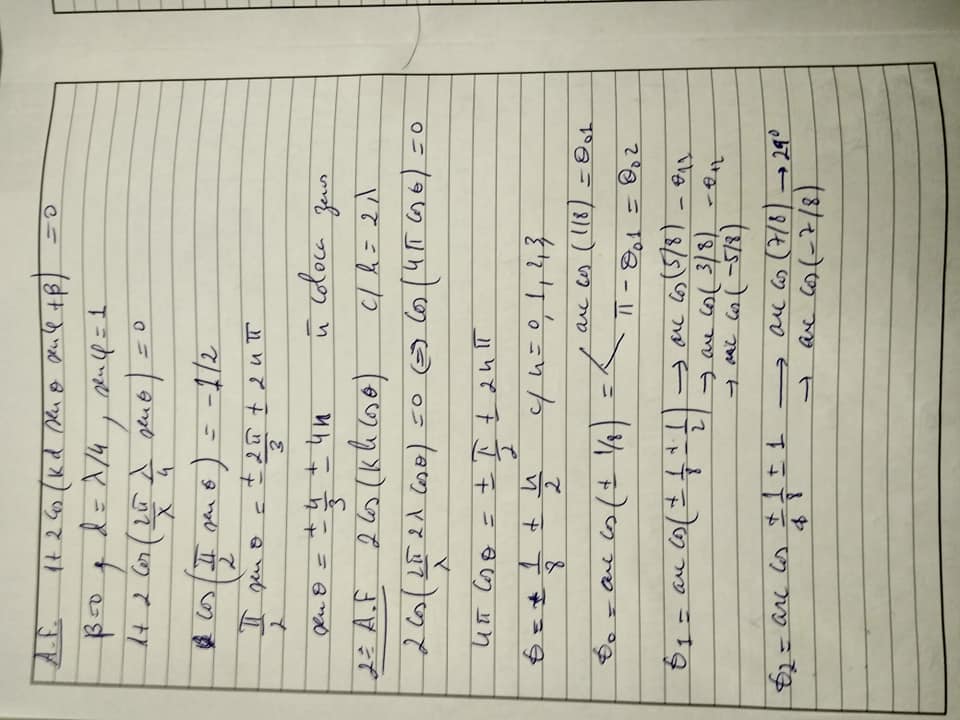 A.F. 1 + 2 cos(kd senθ senφ + β) = 0
β=0, d = λ/4, senφ = 1
1 + 2 cos(2π/λ λ/4 senθ) = 0
cos(π/2 senθ) = -1/2
π/2 senθ = ± 2π/3 ± 2nπ
senθ = ± 4/3 ± 4n ñ coloca zeros
2º A.F 2 cos(kh cosθ) c/ h = 2λ
2 cos(2π/λ 2λ cosθ) = 0 ⇔ cos(4π cosθ) = 0
4π cosθ = ± π/2 ± 2nπ
θ = ± 1/8 ± n/2 c/ n = 0, 1, 2, 3
θ0 = arc cos(± 1/8) = < arc cos(1/8) = θ01
π - θ01 = θ02
θ1 = arc cos(± 1/8 ± 1/2) → arc cos(5/8) - θ11
→ arc cos(3/8) - θ12
→ arc cos(-5/8)
θ2 = arc cos ± 1/8 ± 1 → arc cos(7/8) → 29°
→ arc cos(-7/8)